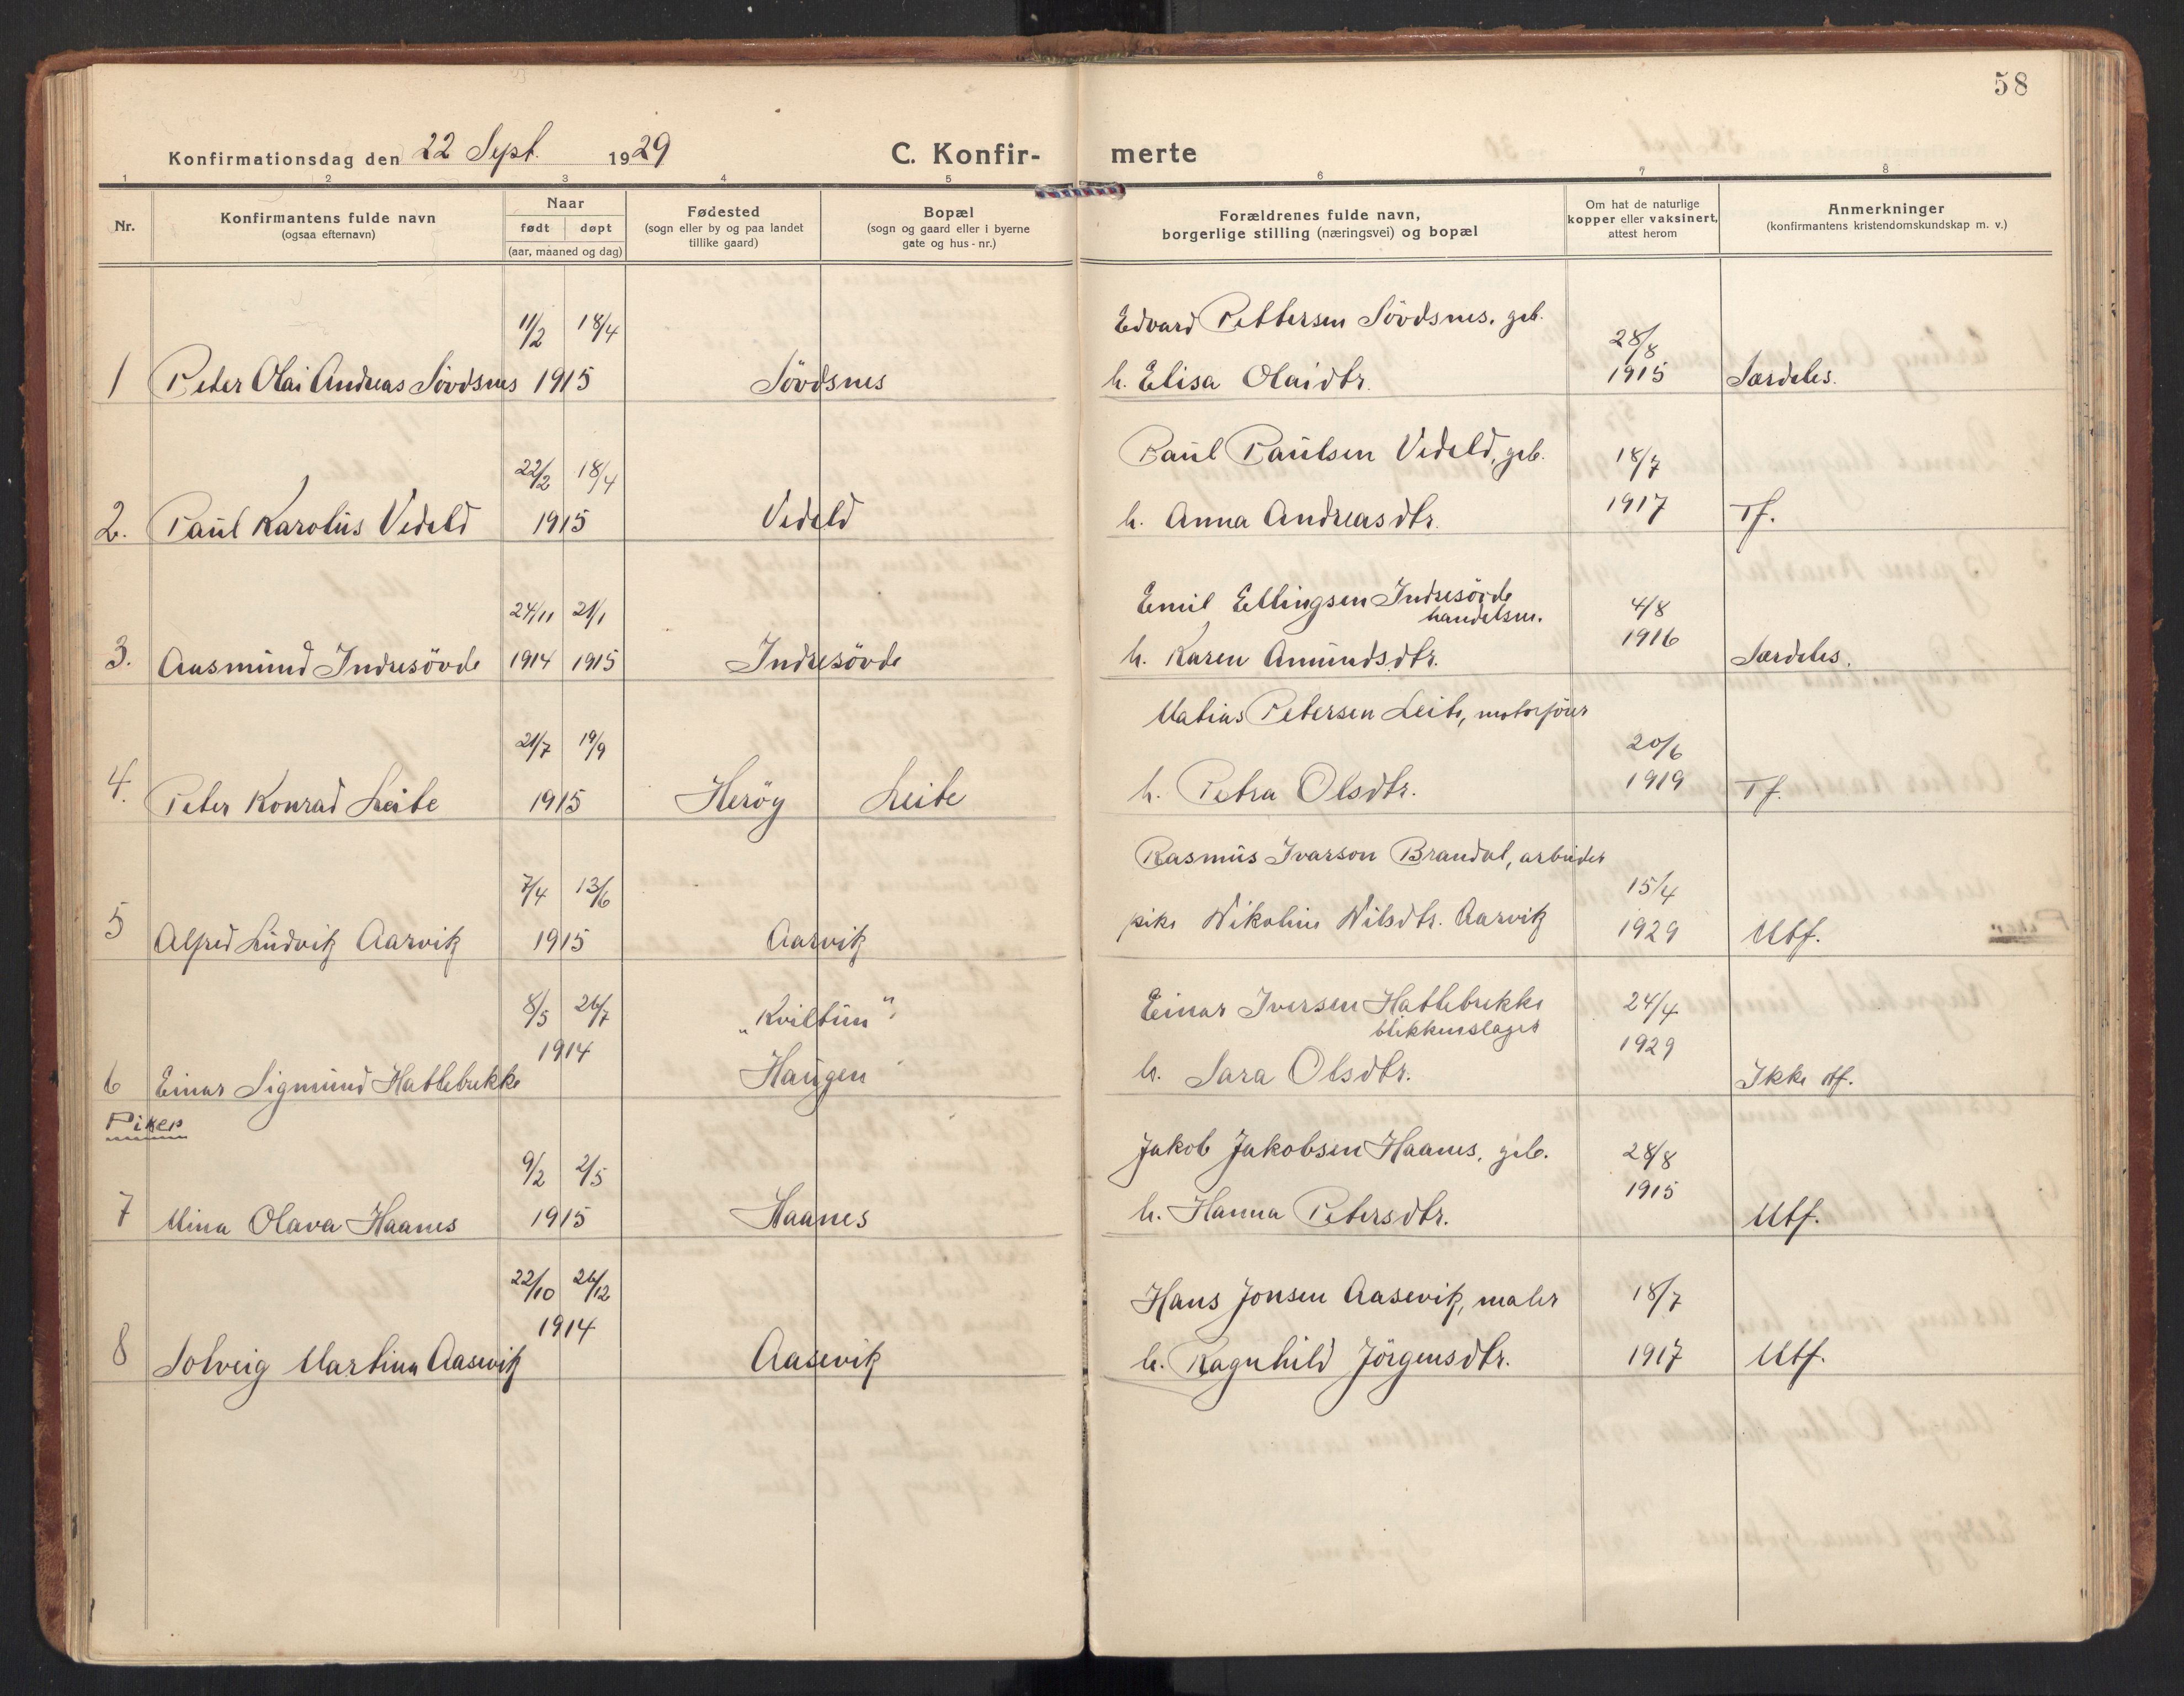 58
Konfirmationsdag den 22 Sept. 1929
C. Konfir- merte
1 2 3 4 5 6 7 8
Nr.
Konfirmantens fulde navn
(ogsaa efternavn)
Naar
født døpt
(aar, maaned og dag)
Fødested
(sogn eller by og paa landet
tillike gaard)
Bopæl
(sogn og gaard eller i byerne
gate og hus - nr.)
Forældrenes fulde navn,
borgerlige stilling (næringsvei) og bopæl
Om hat de naturlige
kopper eller vaksinert,
attest herom
Anmerkninger
(konfirmantens kristendomskundskap m. v.)
11/2 18/4 Edvard Pettersen Sövdsnes, gb. 28/8
1 Peter Olai Andreas Sövdsnes 1915 Sövdsnes h. Elisa Olaidtr. 1915 Særdeles.
22/2 18/4 Paul Paulsen Vedeld, gb. 18/7
2. Paul Karolus Vedeld 1915 Vedeld h. Anna Andreasdtr. 1917 Tf.
24/11 21/1 Emil Ellingsen Indresövde 4/8
handelsm.
3. Aasmund Indresövde 1914 1915 Indresövde h. Karen Amundsdtr. 1916 Særdeles.
21/7 19/9 Matias Petersen Leite, motorförer 20/6
4. Peter Konrad Leite 1915 Heröy Leite h. Petra Olsdtr. 1919 Tf.
7/4 13/6 Rasmus Ivarson Brandal, arbeider 15/4
5 Alfred Ludvik Aarvik 1915 Aarvik pike Nikoline Nilsdtr. Aarvik 1929 Mtf.
8/5 26/7 "Kviltun" Einar Iversen Hatlebrekke 24/4
blikkenslager
1914 1929
6 Einar Sigmund Hatlebrekke Haugen h. Sara Olsdtr. Ikke tf.
Piker
9/2 2/5 Jakob Jakobsen Haanes, gb. 28/8
7 Mina Olava Haanes 1915 Haanes h. Hanna Petersdtr. 1915 Mtf.
22/10 26/12 Hans Jonsen Aasevik, maler 18/7
1914
8 Solveig Martina Aasevik Aasevik h. Ragnhild Jörgensdtr. 1917 Mtf.